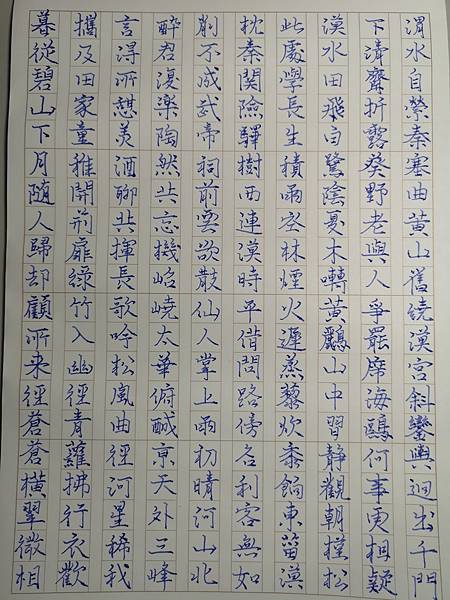 渭水自縈秦塞曲黃山舊繞漢宮斜鑾輿迥出千門
下清齋折露葵野老與人爭罷席海鷗何事更相疑
漠水田飛白鷺陰夏木囀黃鸝山中習靜觀朝槿松
此處學長生積雨空林煙火遲蒸藜炊黍餉東菑漠
枕秦關險驛樹西連漢時平借問路傍名利客無如
削不成武帝祠前雲欲散仙人掌上雨初晴河山北
醉君復樂陶然共忘機岧嶢太華俯鹹京天外三峰
言得所憩美酒聊共揮長歌吟松風曲徑河星稀我
攜及田家童稚開荊扉綠竹入幽徑青蘿拂行衣歡
暮從碧山下月隨人歸却顧所來徑蒼蒼橫翠微相